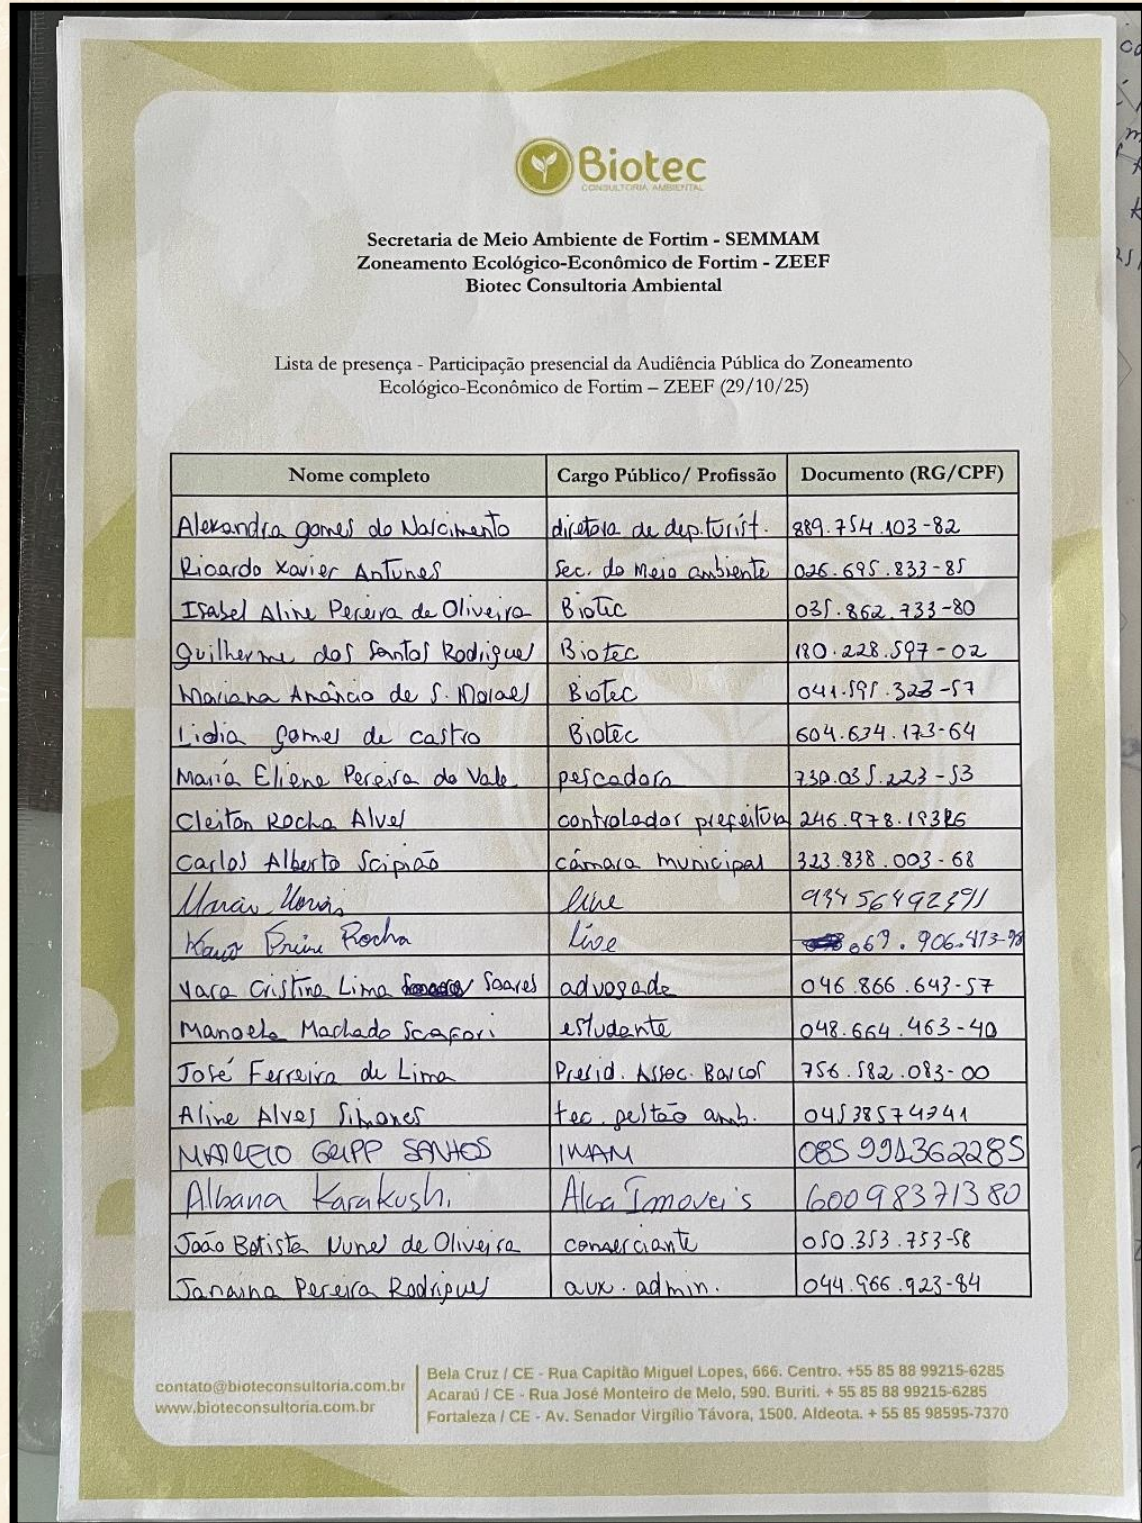 Biotec
CONSULTORIA AMBIENTAL
Secretaria de Meio Ambiente de Fortim - SEMMAM
Zoneamento Ecológico-Econômico de Fortim - ZEEF
Biotec Consultoria Ambiental
Lista de presença - Participação presencial da Audiência Pública do Zoneamento
Ecológico-Econômico de Fortim – ZEEF (29/10/25)
Nome completo Cargo Público/ Profissão Documento (RG/CPF)
Alexandra gomes do Nascimento diretora de dep.turíst. 889.754.103-82
Ricardo Xavier Antunes Sec. do Meio ambiente 026.695.833-85
Isabel Aline Pereira de Oliveira Biotec 035.862.733-80
Guilherme dos Santos Rodrigues Biotec 180.228.597-02
Mariana Amâncio de S. Moraes Biotec 041.595.323-57
Lidia Gomes de castro Biotec 604.634.173-64
Maria Eliene Pereira do Vale pescadora 730.035.223-53
Cleiton Rocha Alves controlador prefeitura 246.978.193
Carlos Alberto Scipião câmara municipal 323.838.003-68
Marcio 93456492391
Rocha 069.906.413-98
Yara Cristina Lima Soares advogada 046.866.643-57
Manoela Machado Scafori estudante 048.664.463-40
José Ferreira de Lima Presid. Assoc. Barcos 756.582.083-00
Aline Alves Simones tec. gestão amb. 04538574341
MARCELO GRIPP SANTOS IMAM 085 991362285
Albana Karakushi Alba Imoveis 60098371380
João Batista Nunes de Oliveira comerciante 050.353.753-58
Janaina Pereira Rodrigues aux. admin. 044.966.923-84
contato@bioteconsultoria.com.br
www.bioteconsultoria.com.br
Bela Cruz / CE - Rua Capitão Miguel Lopes, 666. Centro. +55 85 88 99215-6285
Acaraú / CE - Rua José Monteiro de Melo, 590. Buriti. + 55 85 88 99215-6285
Fortaleza / CE - Av. Senador Virgílio Távora, 1500. Aldeota. + 55 85 98595-7370